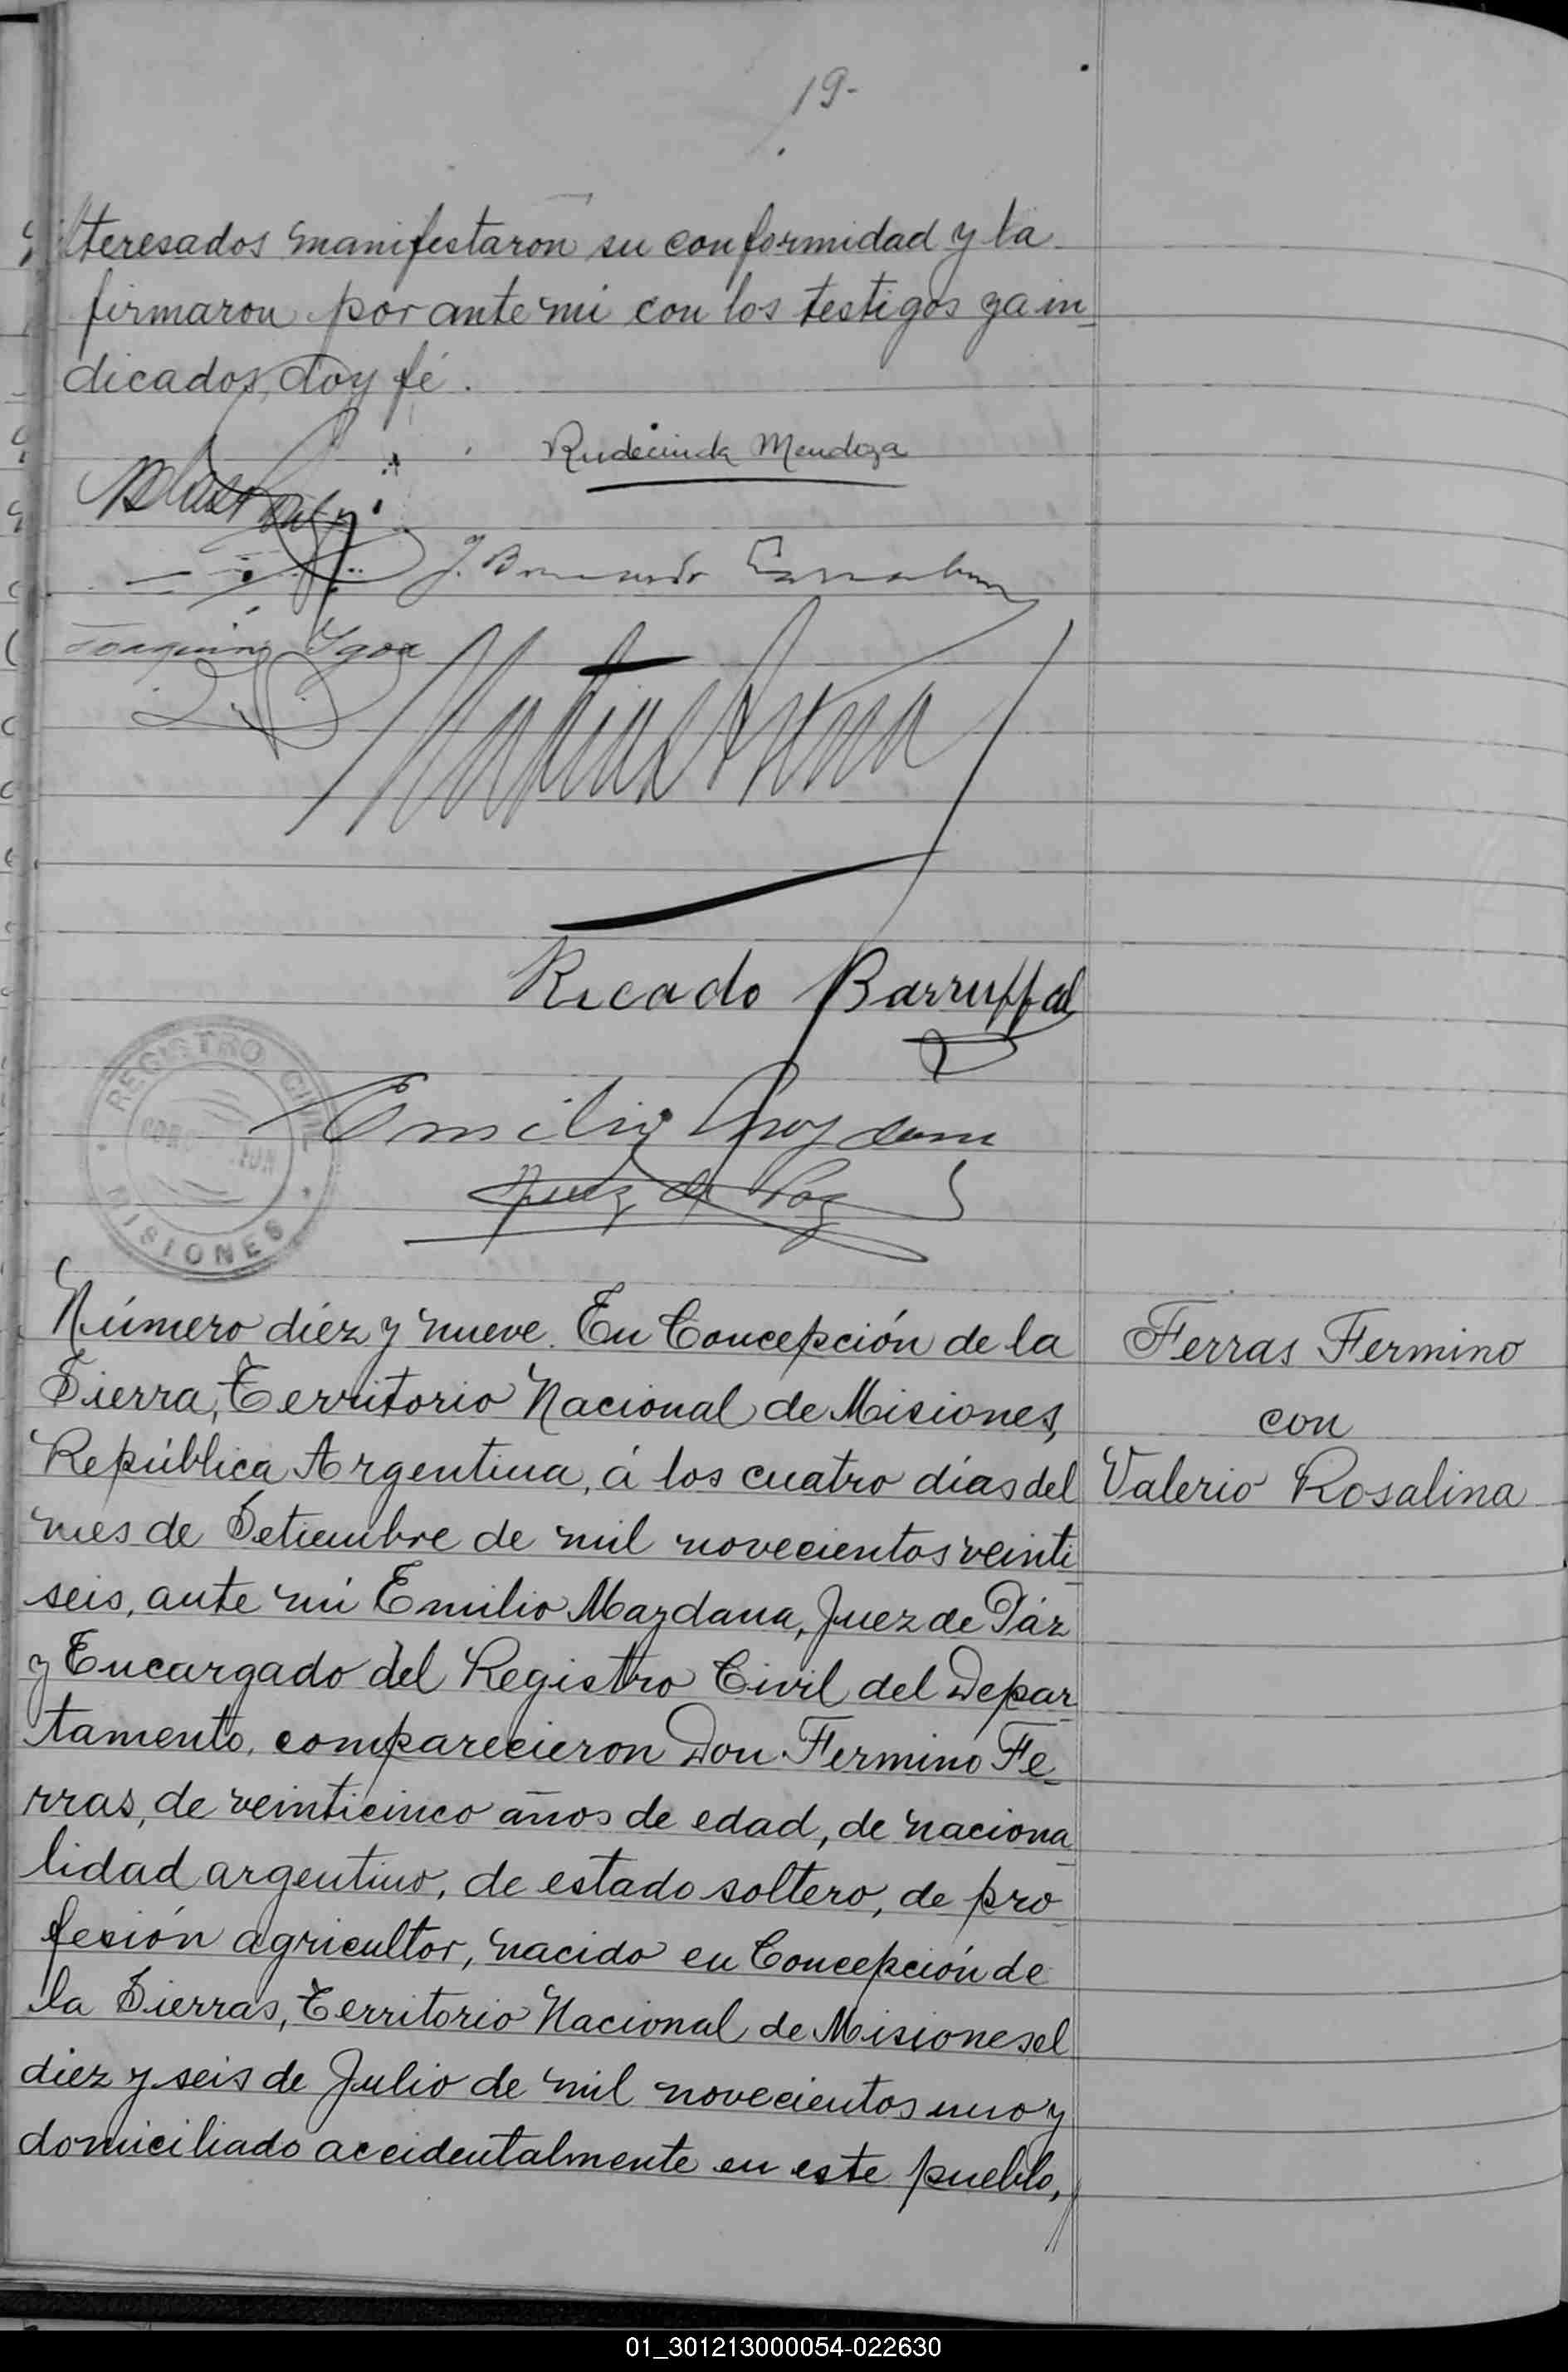 19-
teresados manifestaron su conformidad y la
firmaron por ante mi con los testigos ya in-
dicados, doy fé.
Rudecinda Mendoza
Blas
J.
Joaquin Ygoa
Matias
Ricado Barruffal
Emilio
Juez de Paz
REGISTRO CIVIL
CONCEPCION
MISIONES
Número diéz y nueve. En Concepción de la
Sierra, Territorio Nacional de Misiones,
República Argentina, á los cuatro días del
mes de Setiembre de mil novecientos veinti
seis, ante mi Emilio Maydana, Juez de Páz
y Encargado del Registro Civil del Depar-
tamento, comparecieron Don Fermino Fe-
rras, de veinticinco años de edad, de naciona
lidad argentino, de estado soltero, de pro-
fesión agricultor, nacido en Concepción de
la Sierras, Territorio Nacional de Misiones el
diez y seis de Julio de mil novecientos uno y
domiciliado accidentalmente en este pueblo,
Ferras Fermino
con
Valerio Rosalina
01_301213000054-022630